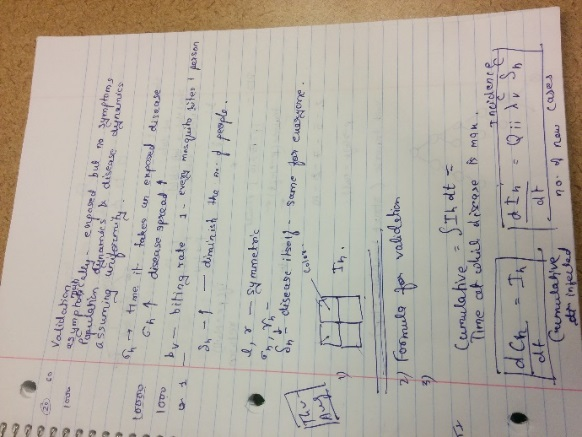 Validation
asymptomatically - exposed but no symptoms
Population dynamics & disease dynamics
assuming uniformity.
1000
10000
σh → time it takes an exposed disease
σh ↑ disease spread ↑
1000
bv - biting rate 1 - every mosquito bites 1 person
δh - ↑ - diminish the no. of people.
symmetric
σh, γh -
δh disease itself - same for everyone.
Aug
1)
color
Ih.
2) Formula for validation
3)
Cumulative = ∫Ih dt =
Time at what disease is max.
Incidence
dCh/dt = Ih
dIh/dt =
λv Sh
Cumulative
infected
no. of new cases